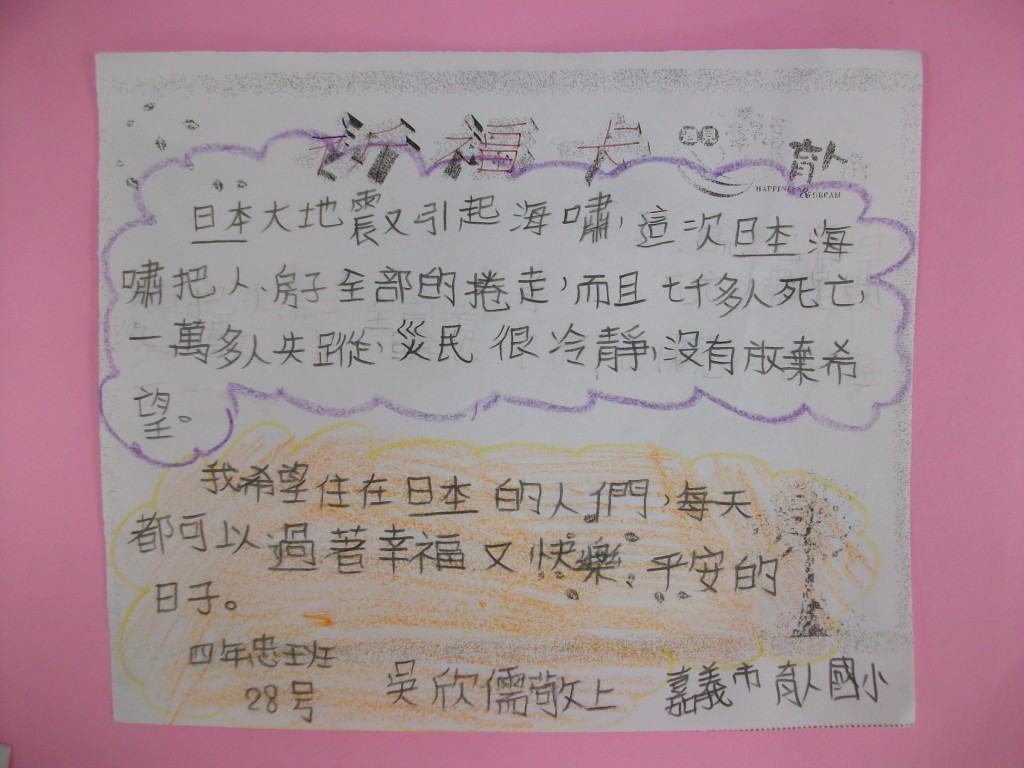 祈福卡 育人
HAPPINESS & DREAM
日本大地震又引起海嘯,這次日本海
嘯把人、房子全部的捲走,而且七千多人死亡,
一萬多人失蹤,災民很冷靜,沒有放棄希
望。
我希望住在日本的人們,每天
都可以過著幸福又快樂、平安的
日子。
四年忠班
28號 吳欣儒敬上 嘉義市育人國小